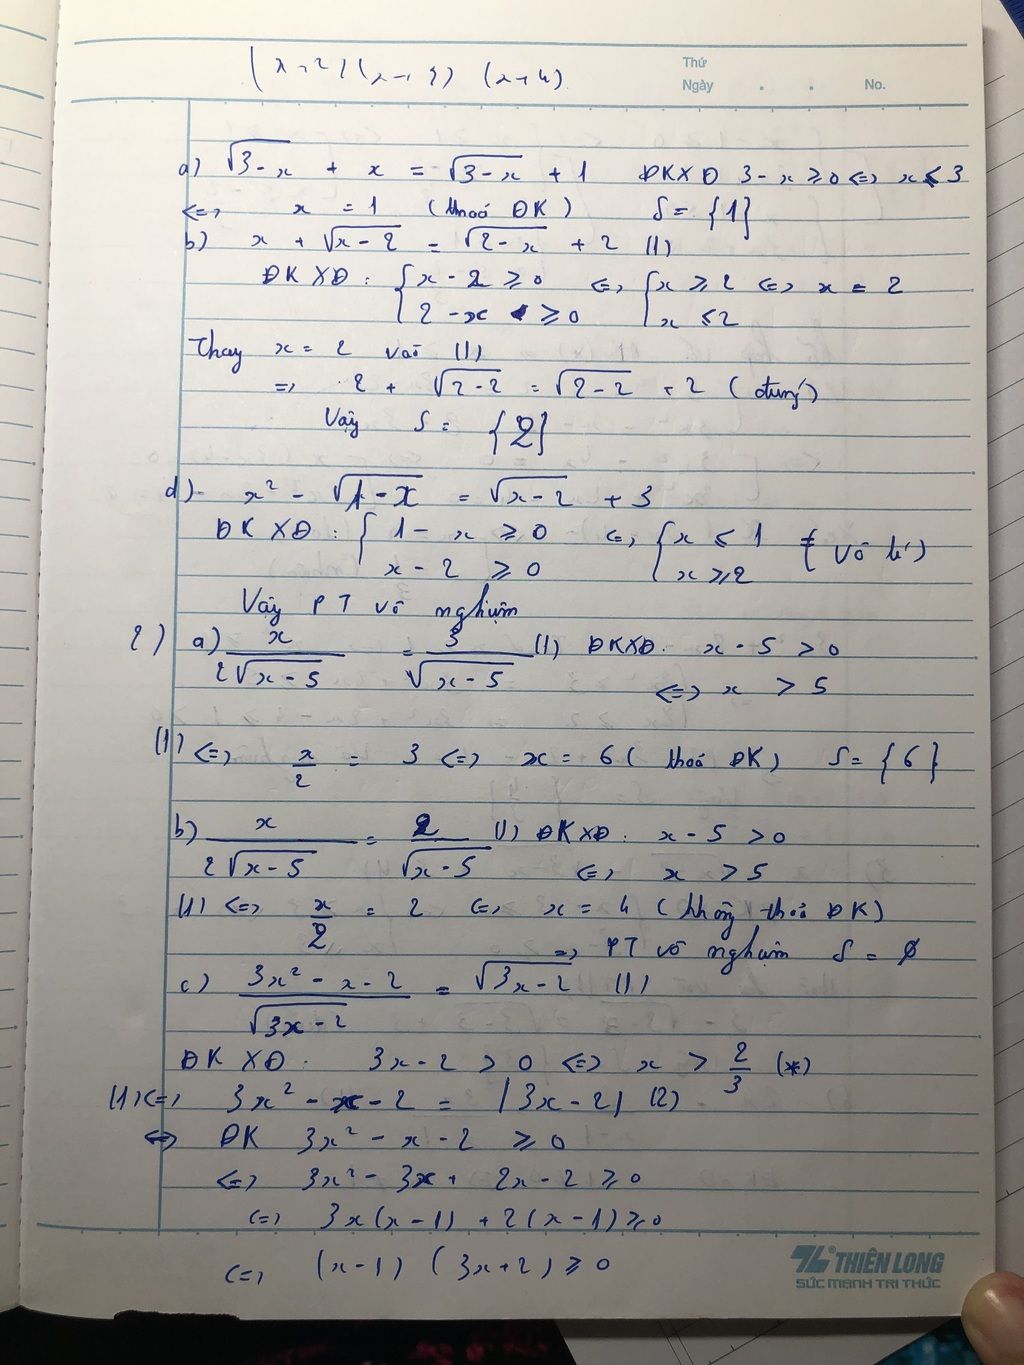 (x+2)(x+3) (x+4)
Thứ
Ngày . . No.
a) √(3-x) + x = √(3-x) + 1 ĐKXĐ 3-x ≥ 0 <=> x ≤ 3
<=> x = 1 (thoả ĐK) S = {1}
b) x + √(x-2) = √(2-x) + 2 (1)
ĐKXĐ: { x-2 ≥ 0 <=> { x ≥ 2 <=> x = 2
2-x ≥ 0 x ≤ 2
Thay x = 2 vào (1)
=> 2 + √(2-2) = √(2-2) + 2 (đúng)
Vậy S = {2}
d) x² - √(1-x) = √(x-2) + 3
ĐKXĐ: { 1-x ≥ 0 <=> { x ≤ 1 (vô lí)
x-2 ≥ 0 x ≥ 2
Vậy PT vô nghiệm
2) a) x/(2√(x-5)) = 3/√(x-5) (1) ĐKXĐ: x-5 > 0
<=> x > 5
(1) <=> x/2 = 3 <=> x = 6 (thoả ĐK) S = {6}
b) x/(2√(x-5)) = 2/√(x-5) (1) ĐKXĐ: x-5 > 0
<=> x > 5
(1) <=> x/2 = 2 <=> x = 4 (không thoả ĐK)
=> PT vô nghiệm S = ∅
c) (3x²-x-2)/√(3x-2) = √(3x-2) (1)
ĐKXĐ: 3x-2 > 0 <=> x > 2/3 (*)
(1) <=> 3x²-x-2 = |3x-2| (2)
<=> ĐK 3x²-x-2 ≥ 0
<=> 3x²-3x+2x-2 ≥ 0
<=> 3x(x-1) + 2(x-1) ≥ 0
<=> (x-1) (3x+2) ≥ 0
THIÊN LONG
SỨC MẠNH TRI THỨC